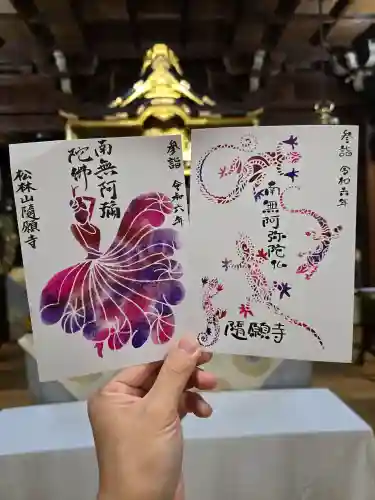 参詣 令和六年
南無阿彌
陀佛
松林山隨願寺
参詣 令和六年
南無阿弥陀仏
隨願寺